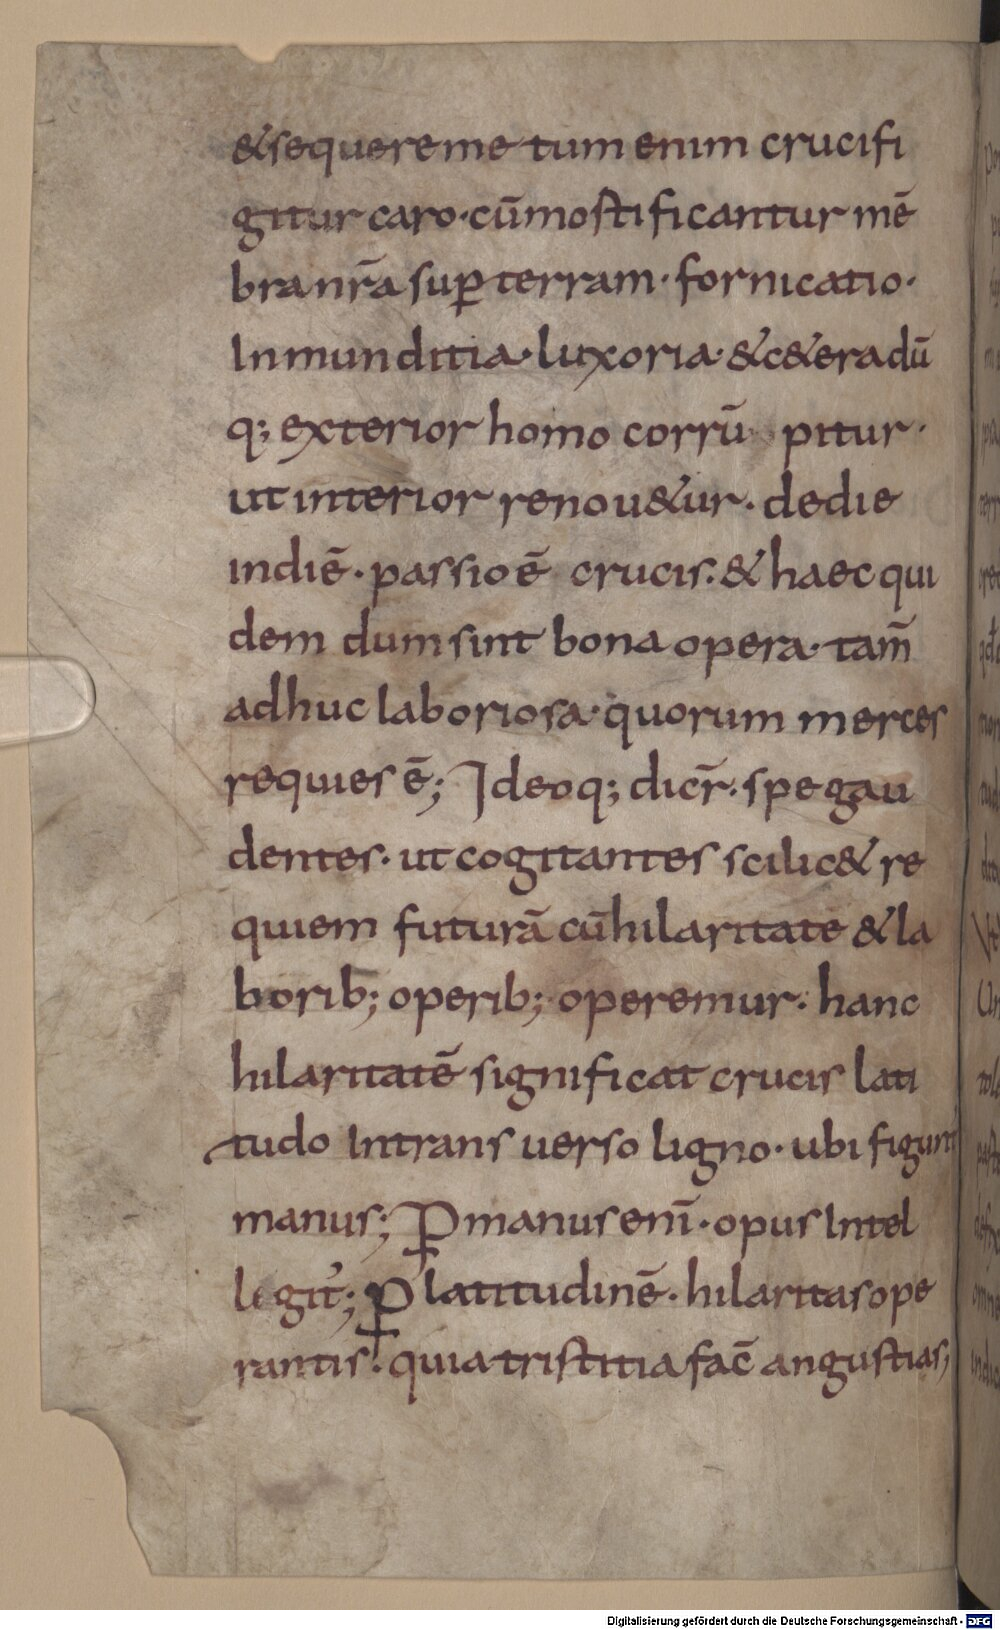 &sequereme tum enim crucifi
gitur caro· cūmostificantur mē
bra nr̄a suꝑ terram· fornicatio·
Inmunditia· luxoria· &c&era dū
q; exterior homo corrū pitur·
ut interior renou&ur· dedie
indiē· passioē crucis· & haec qui
dem dum sint bona opera· tam̄
adhuc laboriosa· quorum merces
requies ē; Ideoq; dicr̄· spe gau
dentes· ut cogitantes scilic& re
quiem futurā cū hilaritate & la
borib; operib; operemur· hanc
hilaritatē significat crucis lati
tudo Intransuerso ligno· ubi figunt̄
manus; ꝑ manus enī· opus Intel
legit̄; ꝑ latitudinē· hilaritas ope
rantis· quia tristitia fac̄ angustias;
Digitalisierung gefördert durch die Deutsche Forschungsgemeinschaft - DFG